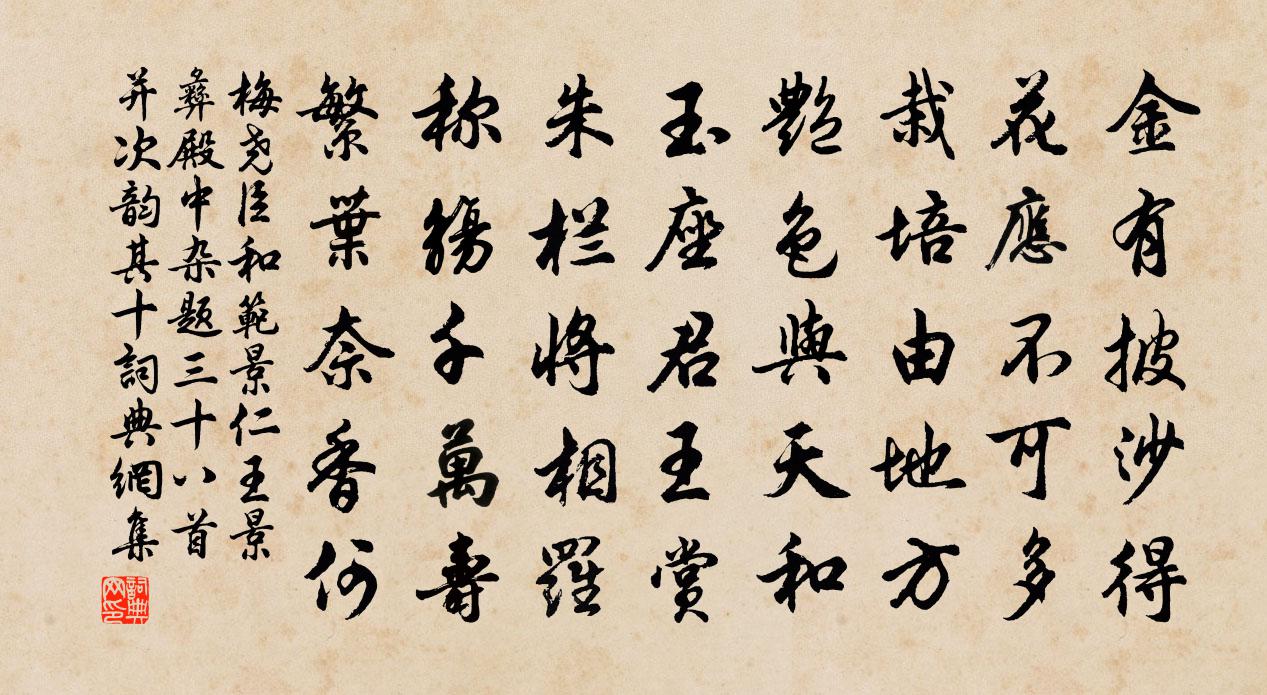 金有披沙得
花應不可多
栽培由地方
艷色與天和
玉座君王赏
朱栏將相羅
称觴千萬壽
繁葉奈香何
梅尧臣和範景仁王景
彝殿中杂题三十八首
并次韵其十詞典網集
詞典
网印